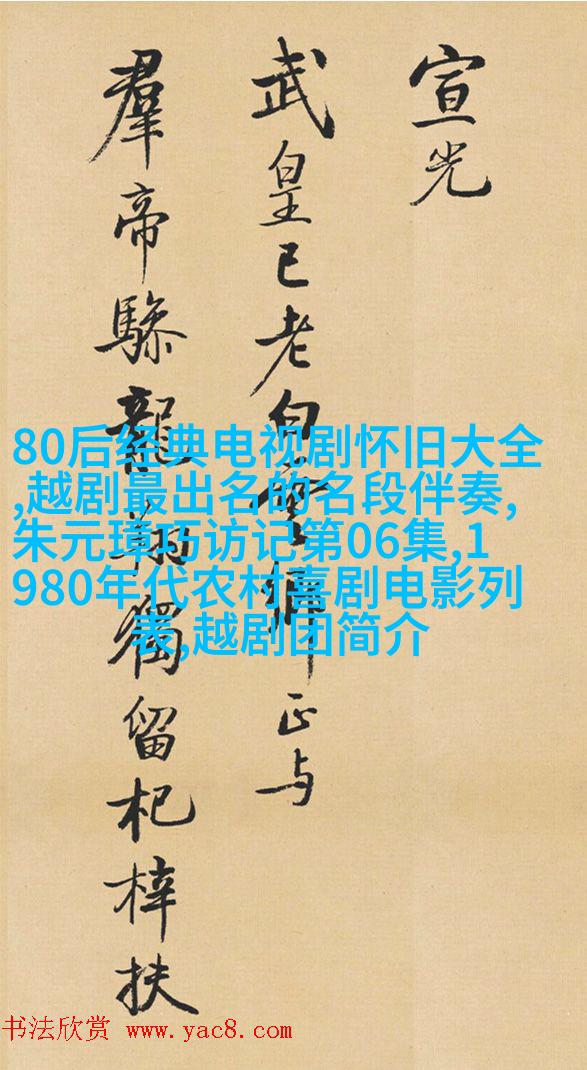 宣光
武皇已老白雲鄉正与
羣帝驂龍翔獨留杞梓扶
80后经典电视剧怀旧大全
,越剧最出名的名段伴奏,
朱元璋巧访记第06集,1
980年代农村喜剧电影列
表,越剧团简介
书法欣赏 www.yac8.com